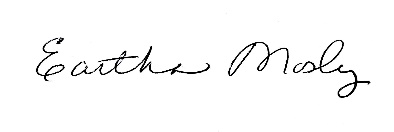 Eartha Mosly